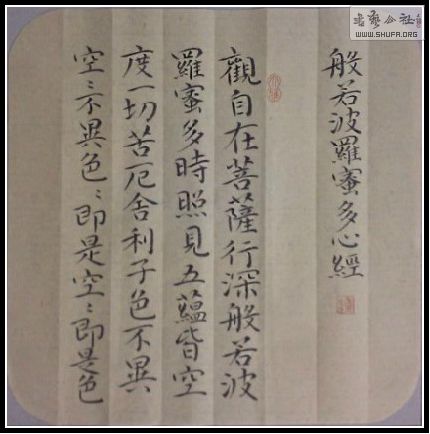 般若波羅蜜多心經
觀自在菩薩行深般若波
羅蜜多時照見五蘊皆空
度一切苦厄舍利子色不異
空〻不異色〻即是空〻即是色
WWW.SHUFA.ORG